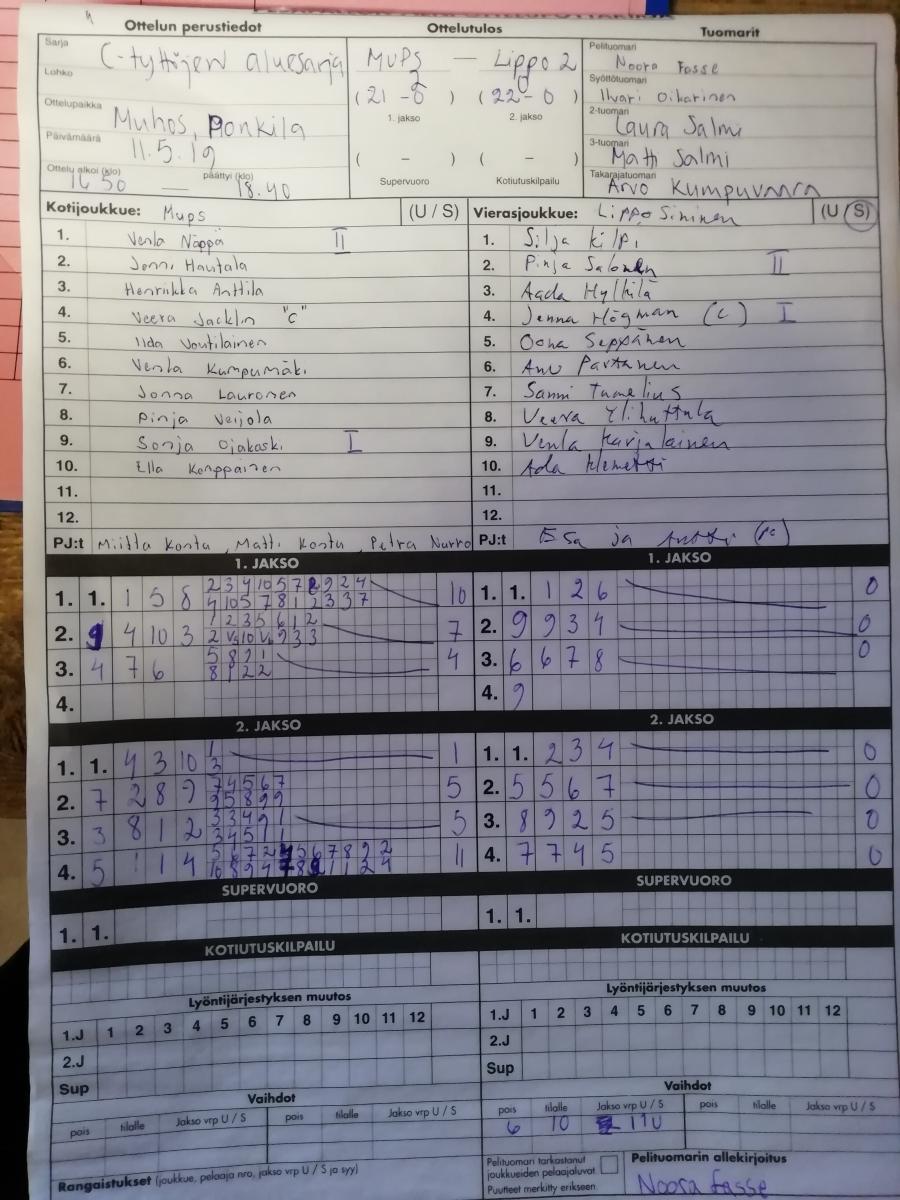 Ottelun perustiedot
Ottelutulos
Tuomarit
Sarja C-tyttöjen aluesarja
Lohko
Ottelupaikka Muhos, Ponkila
Päivämäärä 11.5.19
Ottelu alkoi (klo) 16 50 — päättyi (klo) 18.40
MuPS — Lippo 2
( 21 - 0 ) ( 22 - 0 )
1. jakso 2. jakso
( - ) ( - )
Supervuoro Kotiutuskilpailu
Pelituomari Noora Fasse
Syöttötuomari Ilvari Oikarinen
2-tuomari Laura Salmi
3-tuomari Matti Salmi
Takarajatuomari Arvo Kumpuvaara
Kotijoukkue: Mups (U / S)
1. Venla Näppä II
2. Jenni Hautala
3. Henriikka Anttila
4. Veera Jacklin "C"
5. Iida Voutilainen
6. Venla Kumpumäki
7. Jonna Lauronen
8. Pinja Veijola
9. Sonja Ojakoski I
10. Ella Konppainen
11.
12.
PJ:t Miitta Kosta, Matti Kosta, Petra Nurro
Vierasjoukkue: Lippo Sininen (U / S)
1. Silja Kilpi
2. Pinja Salonen II
3. Aada Hylkilä
4. Jenna Högman (C) I
5. Oona Seppänen
6. Anu Partanen
7. Sanni Tumelius
8. Veera Ylihuttula
9. Venla Karjalainen
10. Ada Klemetti
11.
12.
PJ:t Esa ja
1. JAKSO
1. 1. 1 5 8 10
2. 9 4 10 3 7
3. 4 7 6 5 8 9 1 4
8 1 2 2
4.
1. JAKSO
1. 1. 1 2 6 0
2. 9 9 3 4 0
3. 6 6 7 8 0
4. 9
2. JAKSO
1. 1. 4 3 10 1 1
2
2. 7 2 8 9 7 4 5 6 7 5
9 5 8 9 9
3. 3 8 1 2 3 3 4 9 1 5
3 4 5 1 1
4. 5 1 1 4 11
2. JAKSO
1. 1. 2 3 4 0
2. 5 5 6 7 0
3. 8 9 2 5 0
4. 7 7 4 5 0
SUPERVUORO
1. 1.
SUPERVUORO
1. 1.
KOTIUTUSKILPAILU
KOTIUTUSKILPAILU
Lyöntijärjestyksen muutos
1.J 1 2 3 4 5 6 7 8 9 10 11 12
2.J
Sup
Lyöntijärjestyksen muutos
1.J 1 2 3 4 5 6 7 8 9 10 11 12
2.J
Sup
Vaihdot
pois tilalle Jakso vrp U / S pois tilalle Jakso vrp U / S
Vaihdot
pois tilalle Jakso vrp U / S pois tilalle Jakso vrp U / S
6 10 11U
Rangaistukset (joukkue, pelaaja nro, jakso vrp U / S ja syy)
Pelituomari tarkastanut
joukkueiden pelaajaluvat
Puutteet merkitty erikseen.
Pelituomarin allekirjoitus
Noora Fasse